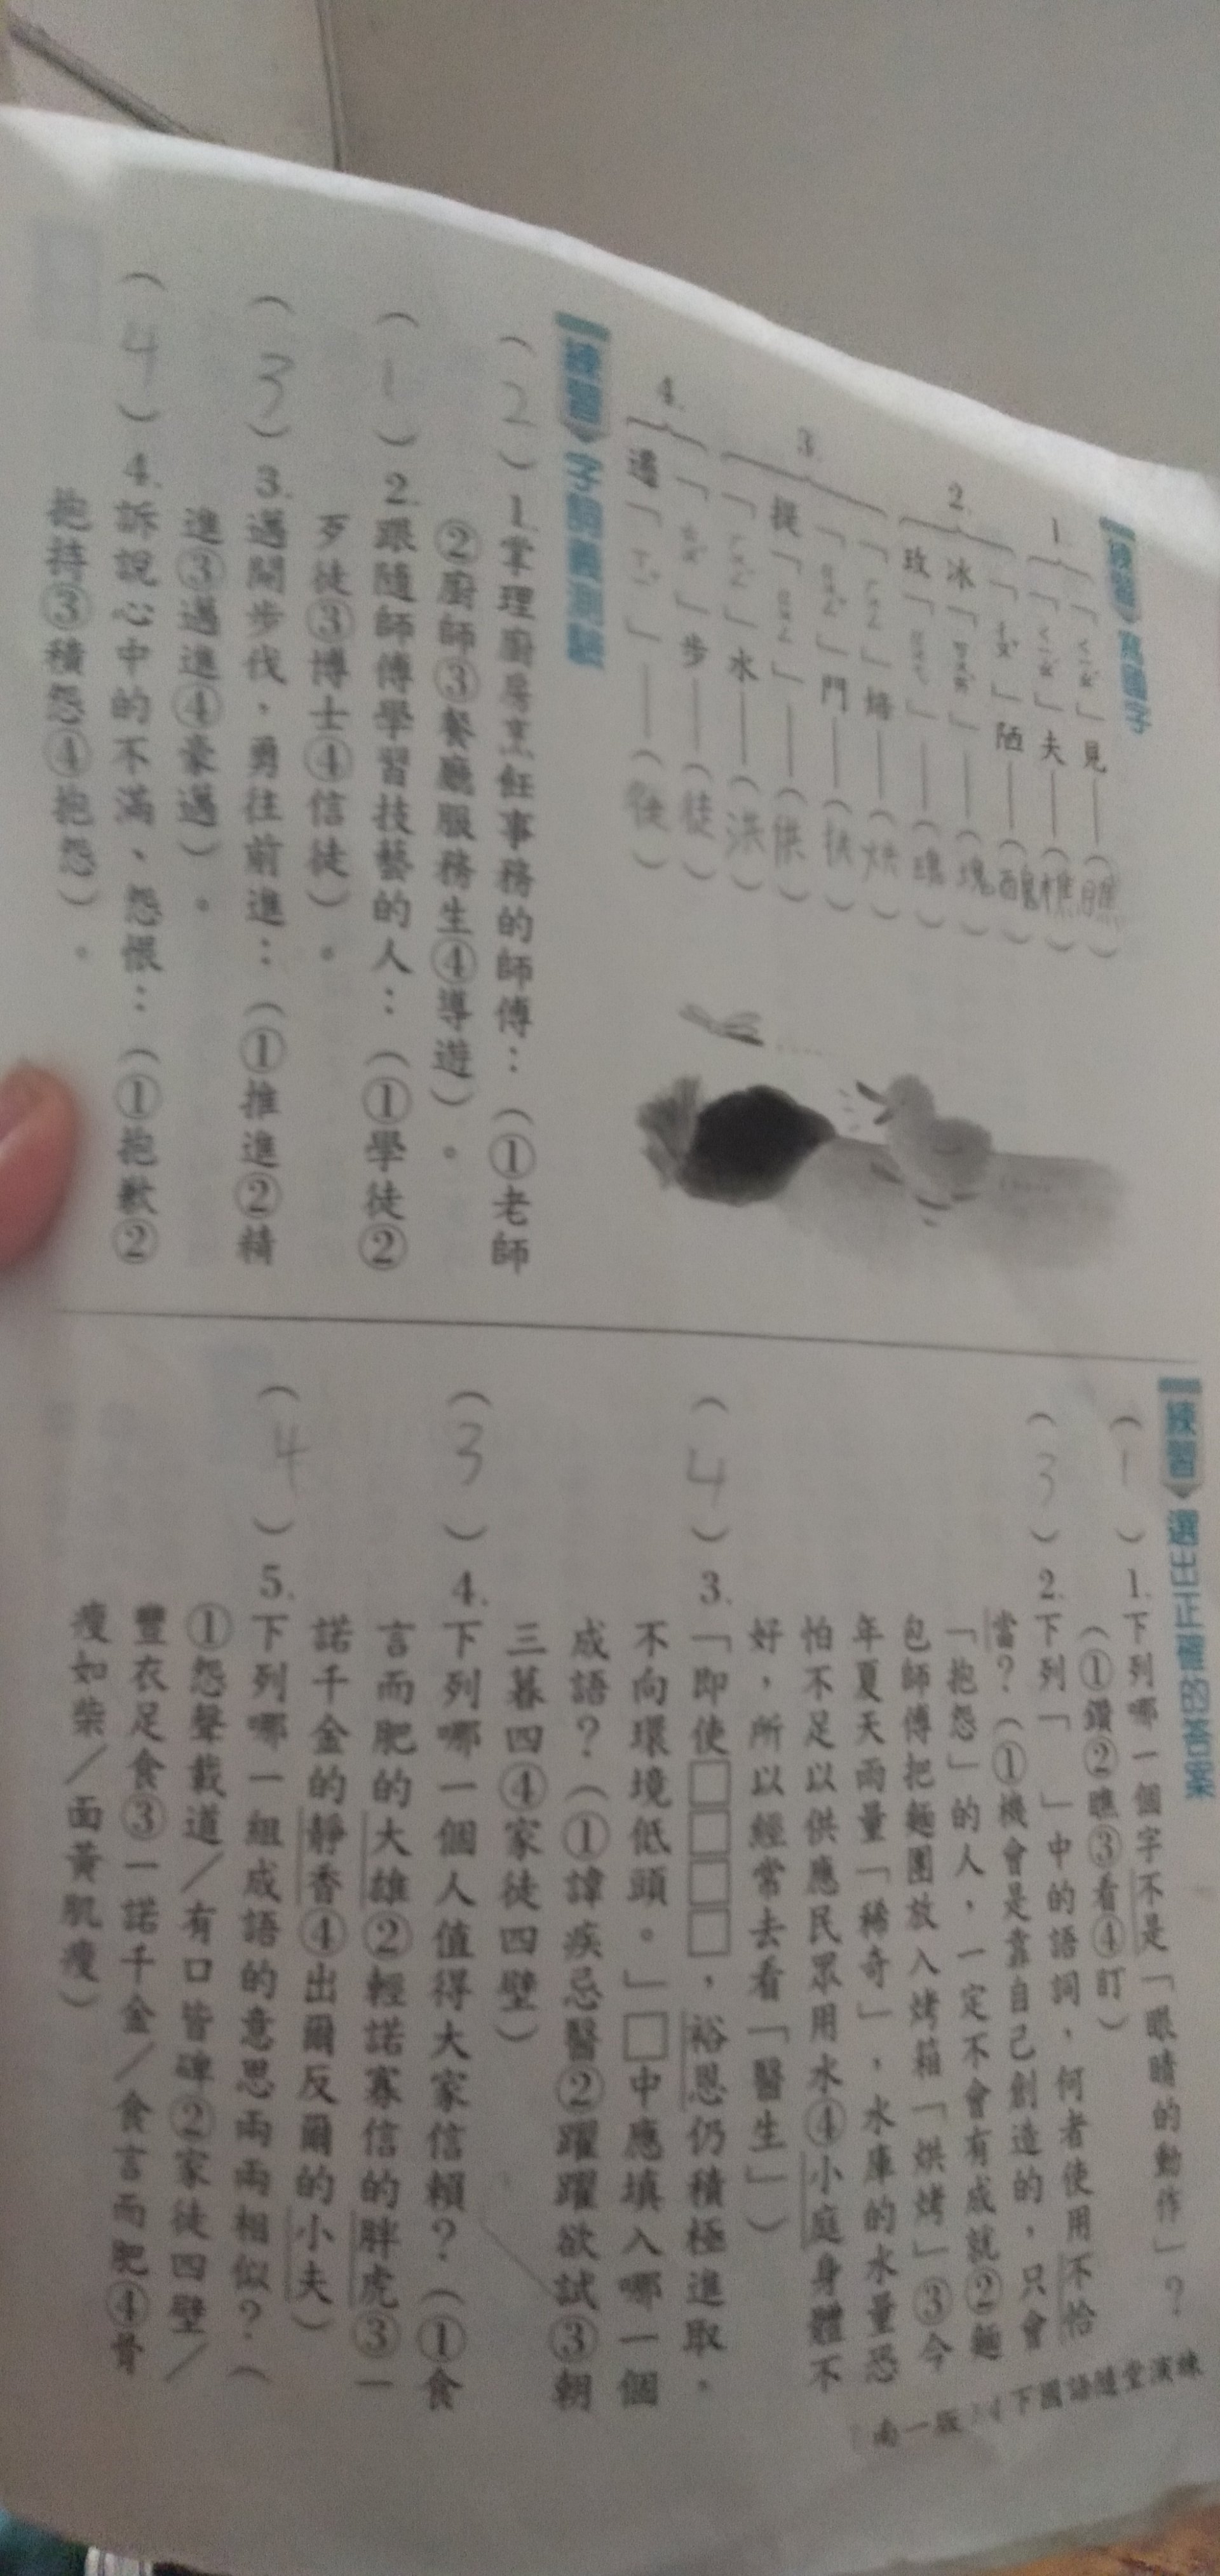 練習 寫國字
1.「ㄑㄧㄠˊ」見——(瞧)
「ㄑㄧㄠˊ」夫——(樵)
2.「ㄔㄡˇ」陋——(醜)
冰「ㄎㄨㄞˋ」——(塊)
玫「ㄍㄨㄟ」——(瑰)
3.「ㄏㄨㄥ」焙——(烘)
「ㄍㄨㄥˇ」門——(拱)
提「ㄍㄨㄥ」——(供)
「ㄏㄨㄥˊ」水——(洪)
4.「ㄊㄨˊ」步——(徒)
遷「ㄒㄧˇ」——(徙)
練習 字詞義測驗
(2)1.掌理廚房烹飪事務的師傅:(①老師
②廚師③餐廳服務生④導遊)。
(1)2.跟隨師傅學習技藝的人:(①學徒②
歹徒③博士④信徒)。
(3)3.邁開步伐,勇往前進:(①推進②精
進③邁進④豪邁)。
(4)4.訴說心中的不滿、怨恨:(①抱歉②
抱持③積怨④抱怨)。
練習 選出正確的答案
(1)1.下列哪一個字不是「眼睛的動作」?
(①鑽②瞧③看④盯)
(3)2.下列「 」中的語詞,何者使用不恰
當?(①機會是靠自己創造的,只會
「抱怨」的人,一定不會有成就②麵
包師傅把麵團放入烤箱「烘烤」③今
年夏天雨量「稀奇」,水庫的水量恐
怕不足以供應民眾用水④小庭身體不
好,所以經常去看「醫生」)
(4)3.「即使□□□□,裕恩仍積極進取,
不向環境低頭。」□中應填入哪一個
成語?(①諱疾忌醫②躍躍欲試③朝
三暮四④家徒四壁)
(3)4.下列哪一個人值得大家信賴?(①食
言而肥的大雄②輕諾寡信的胖虎③一
諾千金的靜香④出爾反爾的小夫)
(4)5.下列哪一組成語的意思兩兩相似?(
①怨聲載道/有口皆碑②家徒四壁/
豐衣足食③一諾千金/食言而肥④骨
瘦如柴/面黃肌瘦)
南一版 下國語隨堂演練